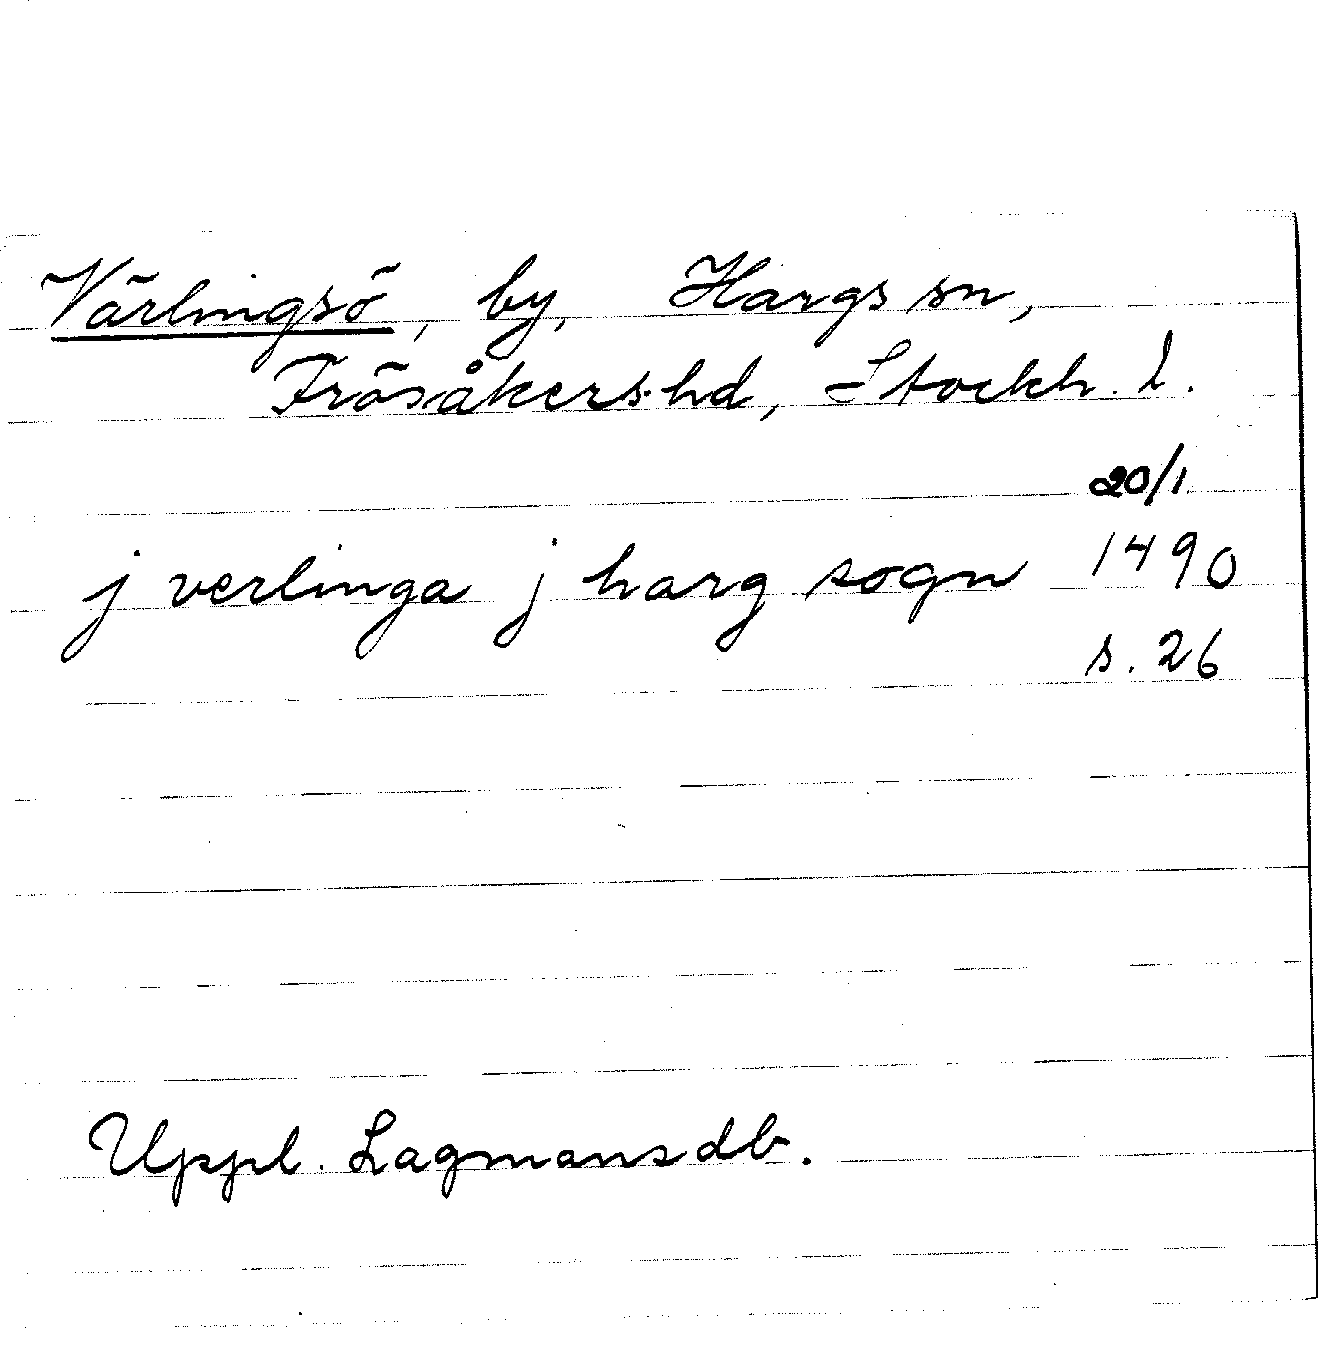 Värlingsö, by, Hargs sn,
Frösåkers hd, Stockh. l.
20/1
j verlinga j harg sogn 1490
s. 26
Uppl. Lagmansdb.